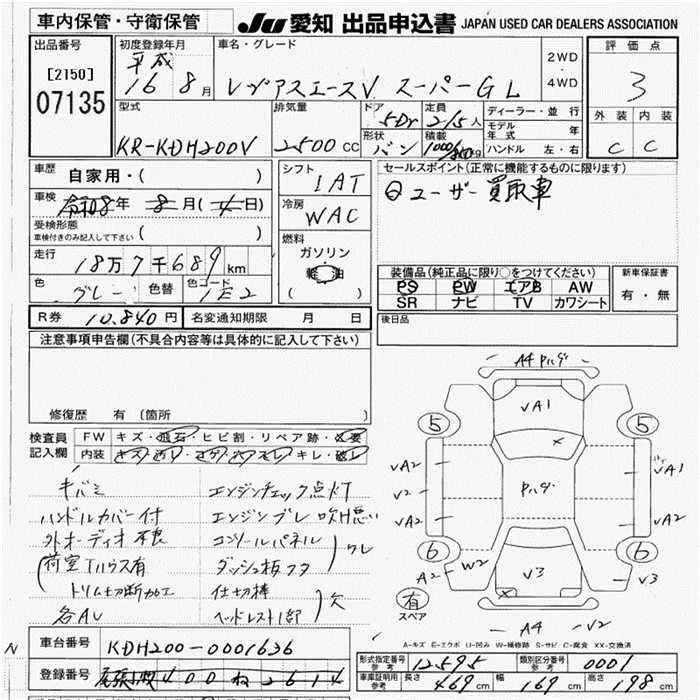 車内保管・守衛保管
JU 愛知 出品申込書 JAPAN USED CAR DEALERS ASSOCIATION
出品番号 初度登録年月 車名・グレード 2WD・4WD 評価点
[2150] 平成
07135 16年8月 レジアスエースV スーパーGL 3
型式 排気量 ドア 5Dr 定員 2/5人 ディーラー・並行 外装 内装
KR-KDH200V 2500cc 形状 バン 積載 1000/kg モデル年式 年 C C
ハンドル 左・右
車歴 自家用・( ) シフト 1AT セールスポイント(正常に機能するものに限ります)
車検 令和8年8月(4日) 冷房 WAC ユーザー買取車
受検形態 車検付きのみ記入して下さい ( )
走行 18万7千689km 燃料 ガソリン 軽油 ( )
色 グレー 色替 色コード 1E2
装備品(純正品に限り○をつけてください) 新車保証書
PS PW エアB AW 有・無
SR ナビ TV カワシート
R券 10,840円 名変通知期限 月 日 後日品
注意事項申告欄(不具合内容等は具体的に記入して下さい)
修復歴 有(箇所
検査員記入欄 FW キズ・飛石・ヒビ割・リペア跡・交要
内装 キズ・汚レ・コゲ・穴・スレ・キレ・破レ
キバミ エンジンチェック点灯
ハンドルカバー付 エンジンブレ 吹け悪い
外オーディオ不良 コンソールパネル
荷室Tハウス有 ダッシュ板フタ ワレ
トリム切断加工 仕切棒
各AU ヘッドレスト1部 欠
A4 Pハゲ
VA1
5 5
VA2 VA1
V2 Pハゲ
VA2 VA2
6 6
A2 W2 V3 V3
有 スペア
A4 V2
A-キズ E-エクボ U-凹み W-補修跡 S-サビ C-腐食 XX-交換済
N
車台番号 KDH200-0001636
登録番号 尾張小牧400ね2614
形式指定番号 参考 12595 類別区分番号 参考 0001
車庫証明用 参考 長さ 469cm 幅 169cm 高さ 198cm